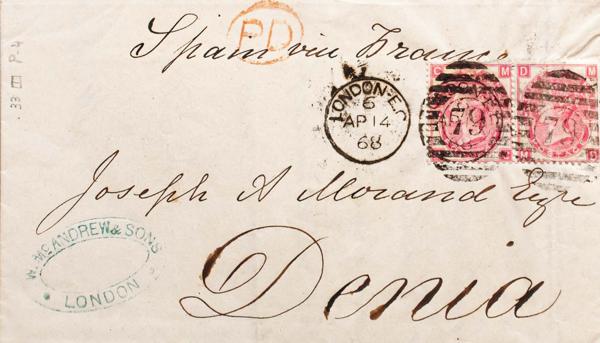 PD
Spain via France
33 P4
LONDON·E.C
6
AP 14
68
C M
D M
79
79
M D
Joseph A Morand Eqre
Denia
W. Mc ANDREW & SONS
LONDON